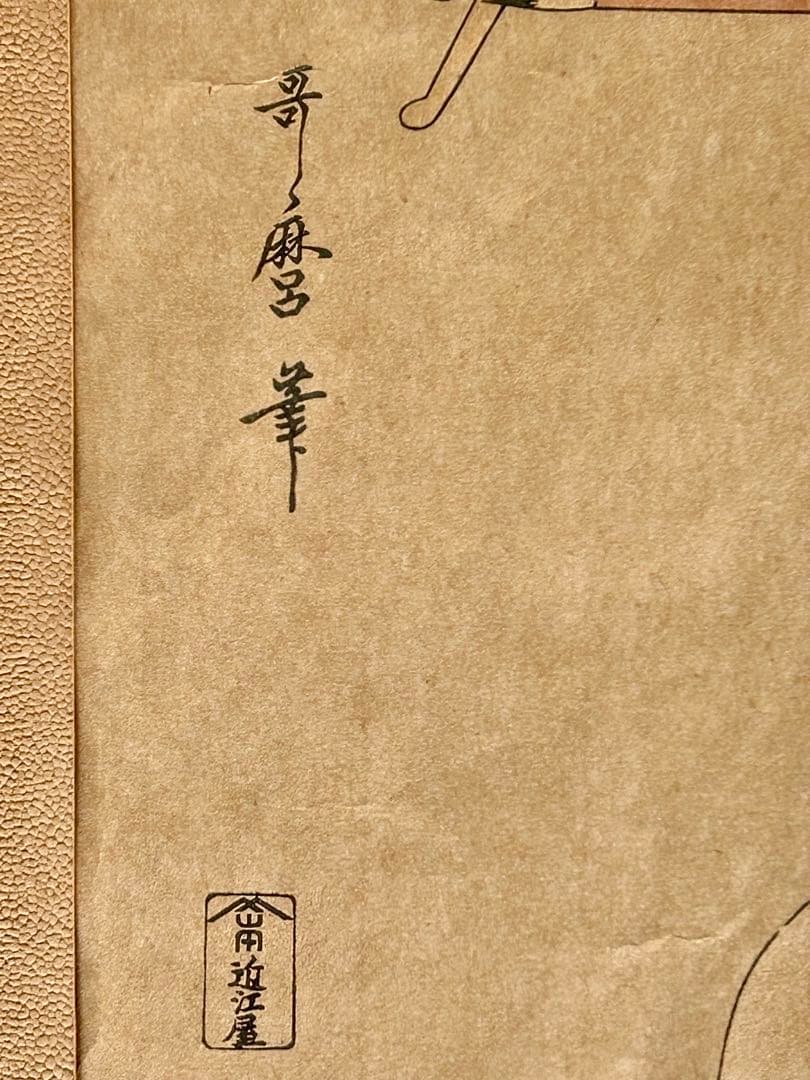 哥々麿筆
近江屋